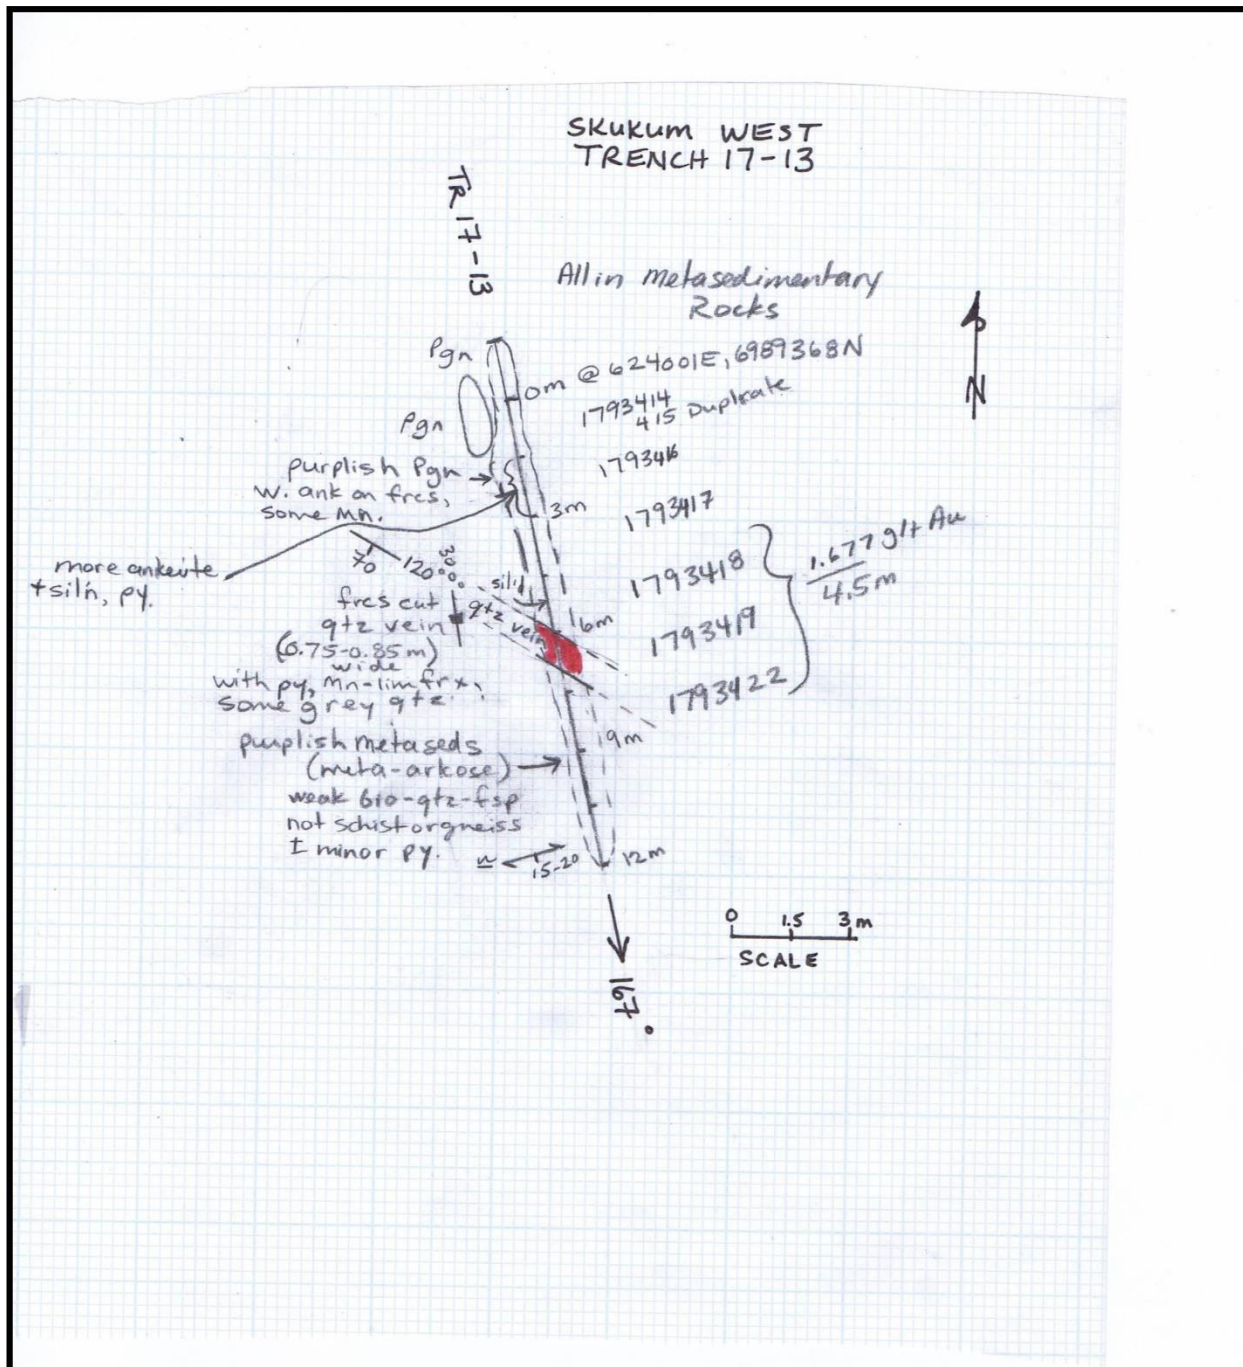 SKUKUM WEST
TRENCH 17-13
TR 17-13
All in Metasedimentary
Rocks
N
Pgn
0m @ 624001E, 6989368N
1793414
415 Duplicate
Pgn
1793416
purplish Pgn
w. ank on frcs,
some Mn.
3m
1793417
more ankerite
+ sil'n, py.
70
120
30
1793418
1.677 g/t Au
4.5m
frcs cut
qtz vein
(0.75-0.85m)
wide
with py, Mn-lim frx,
some grey qtz.
qtz vein
6m
1793419
1793422
purplish metaseds
(meta-arkose)
weak bio-qtz-fsp
not schist or gneiss
± minor py.
9m
15-20
12m
0 1.5 3m
SCALE
167°